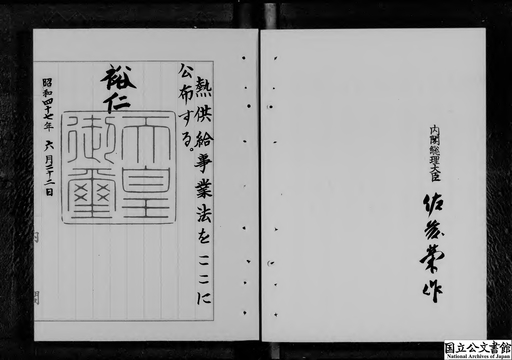 熱供給事業法をここに
公布する。
裕仁
天皇
御璽
昭和四十七年 六月二十二日
内閣
内閣総理大臣
佐藤榮作
国立公文書館
National Archives of Japan